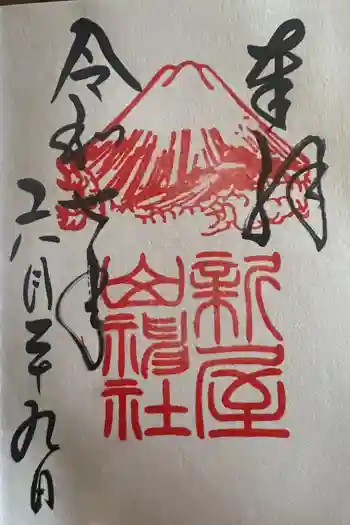 奉拝
新屋
山神社
令和七年
六月二十九日